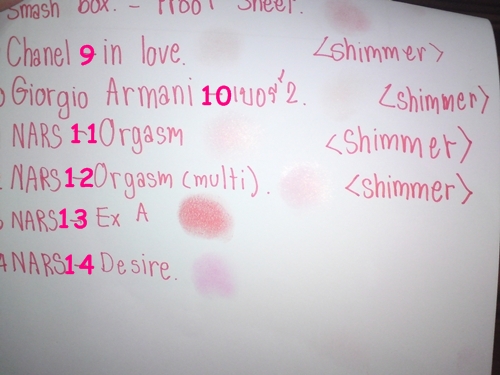 Smash box. - Proof Sheet.
Chanel 9 in love. <shimmer>
Giorgio Armani 10 2. <shimmer>
NARS 11 Orgasm <shimmer>
NARS 12 Orgasm (multi). <shimmer>
NARS 13 Ex A
NARS 14 Desire.